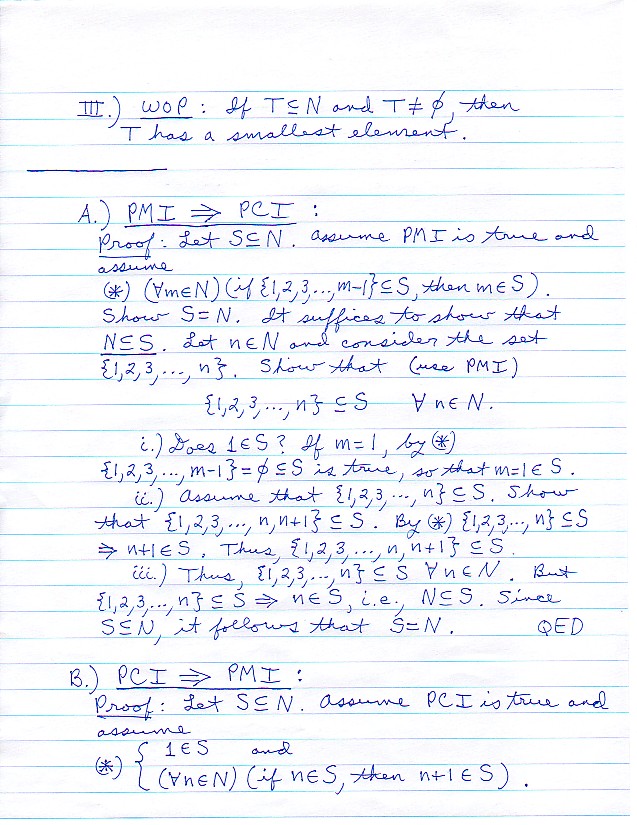 III.) WOP : If T⊆N and T≠∅, then
T has a smallest element.
A.) PMI ⇒ PCI :
Proof : Let S⊆N. Assume PMI is true and
assume
(*) (∀m∈N)(if {1,2,3,...,m-1}⊆S, then m∈S).
Show S=N. It suffices to show that
N⊆S. Let n∈N and consider the set
{1,2,3,...,n}. Show that (use PMI)
{1,2,3,...,n} ⊆ S ∀ n∈N.
i.) Does 1∈S? If m=1, by (*)
{1,2,3,...,m-1}=∅⊆S is true, so that m=1∈S.
ii.) Assume that {1,2,3,...,n}⊆S. Show
that {1,2,3,...,n,n+1}⊆S. By (*) {1,2,3,...,n}⊆S
⇒ n+1∈S. Thus, {1,2,3,...,n,n+1}⊆S.
iii.) Thus, {1,2,3,...,n}⊆S ∀n∈N. But
{1,2,3,...,n}⊆S ⇒ n∈S, i.e., N⊆S. Since
S⊆N, it follows that S=N. QED
B.) PCI ⇒ PMI :
Proof : Let S⊆N. Assume PCI is true and
assume
(*) { 1∈S and
(∀n∈N)(if n∈S, then n+1∈S).